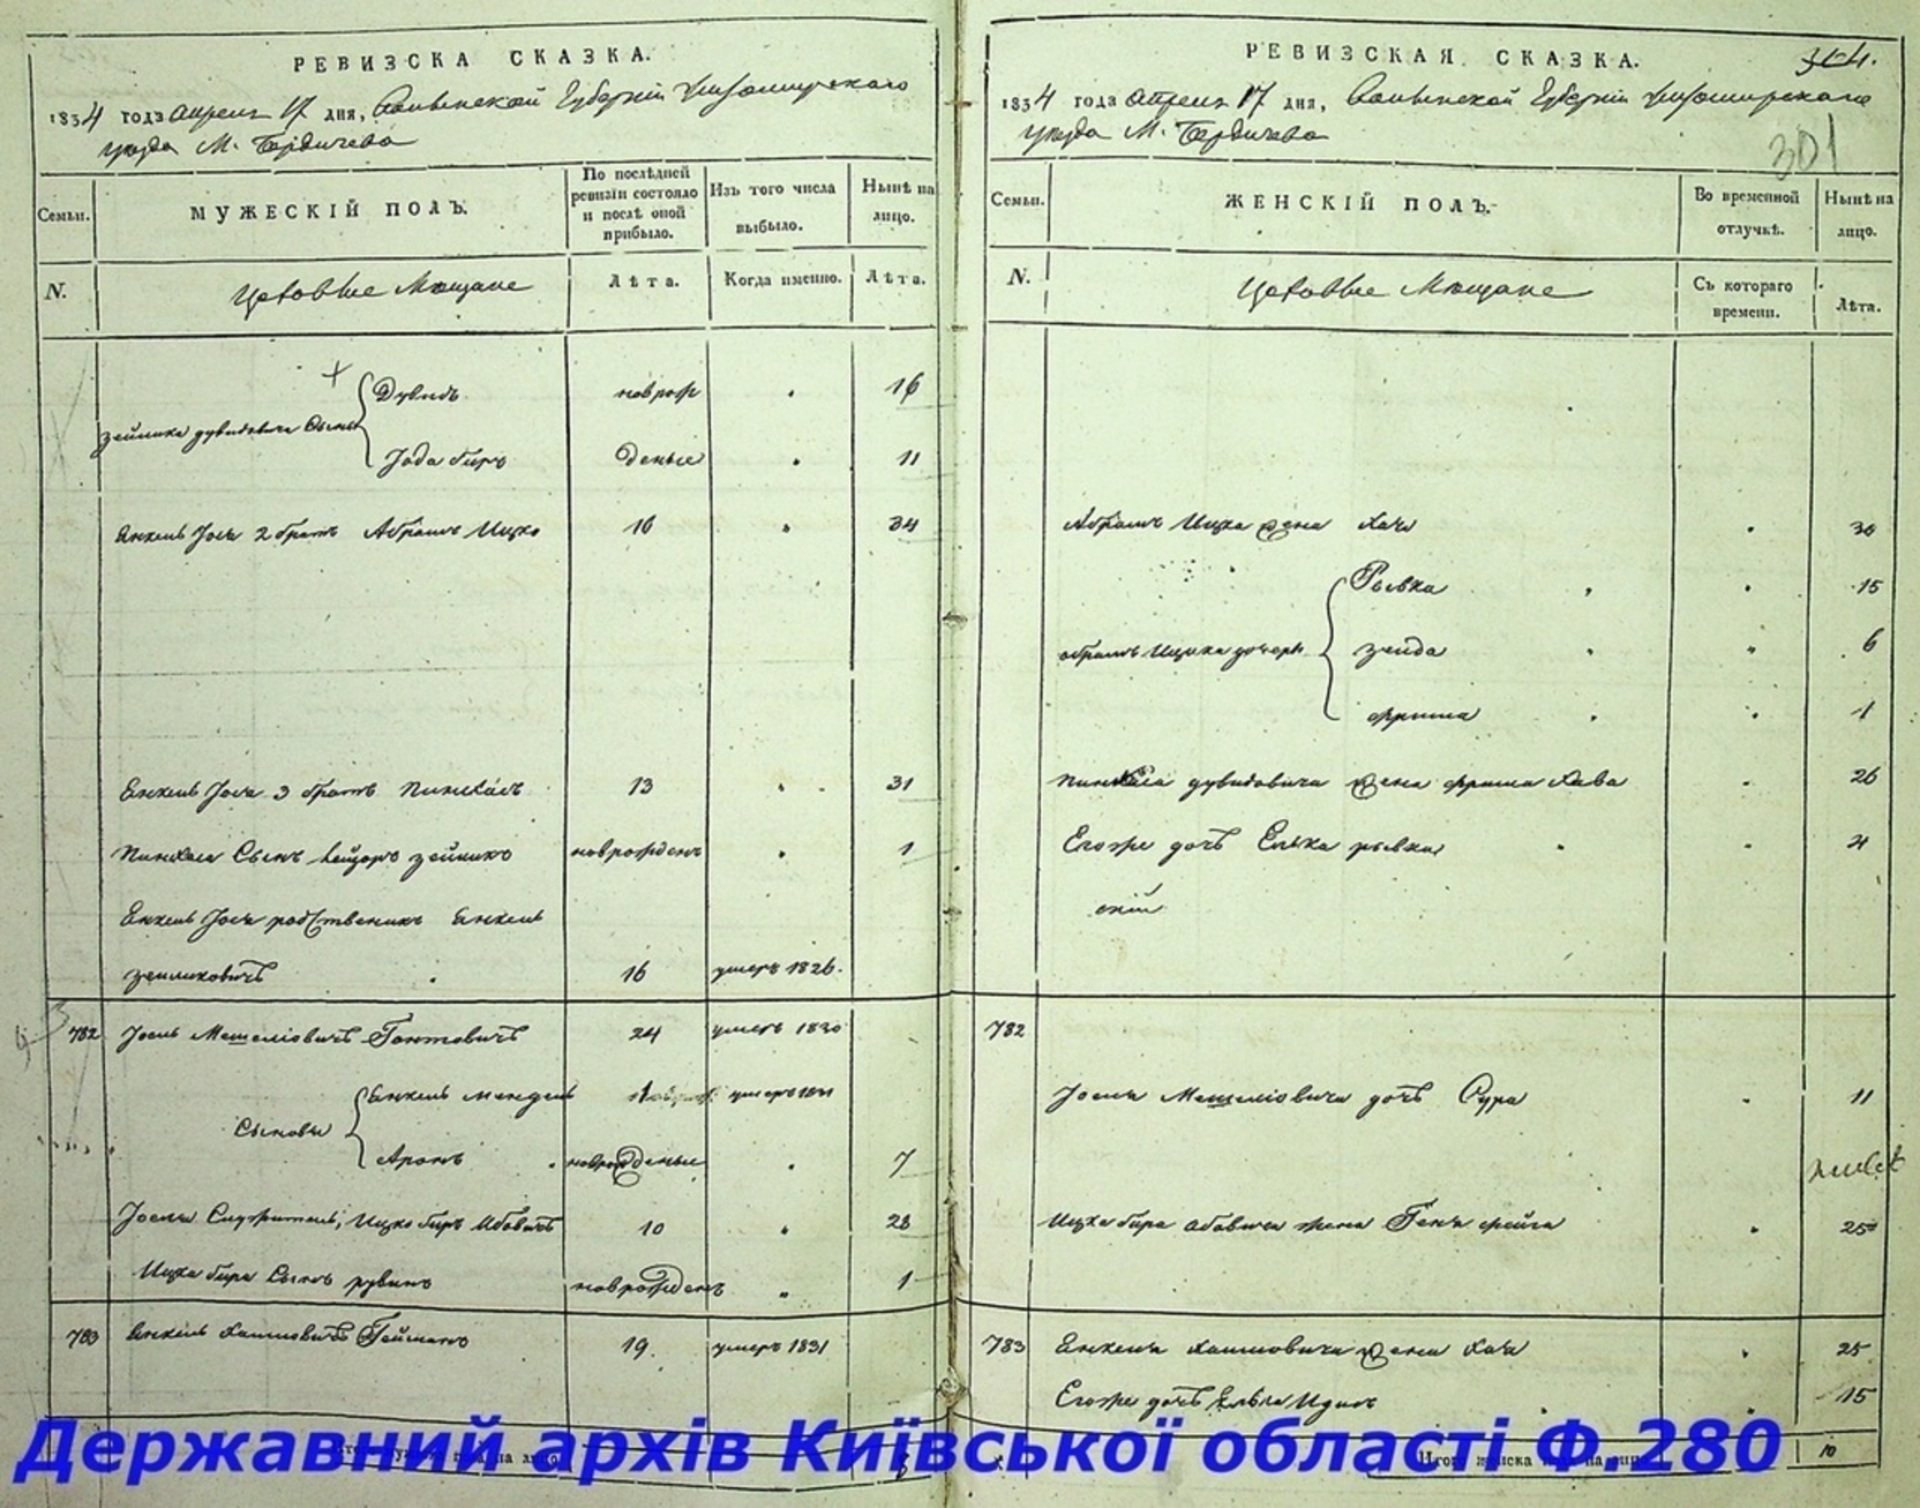 РЕВИЗСКА СКАЗКА.
1834 года апреля 17 дня, Волынской Губернии Житомирского
уезда М. Бердичева
Семьи.
МУЖЕСКІЙ ПОЛЪ.
По послѣдней ревизіи состояло и послѣ оной прибыло.
Изъ того числа выбыло.
Нынѣ на лицо.
N.
Цеховые Мещане
Лѣта.
Когда именно.
Лѣта.
Зейлика Дувидовича Сыны
Дувидъ новрож 16
Іода беръ деные 11
Енкеля Іося 2 братъ Абрамъ Ицко 16 34
Енкеля Іося 3 братъ Пинкасъ 13 31
Пинкаса Сынъ Лейзоръ Зейликъ новрожденъ 1
Енкеля Іося родственикъ Енкель
Зейликовичъ 16 умеръ 1826.
782 Іосель Мешеліовичъ 24 умеръ 1830
Сыновья
Енкель Мендель умеръ
Аронъ новорожденые 7
Іоселя Ицко беръ 10 28
Ицка бера Сынъ Рувинъ новрожденъ 1
783 Енкель Хаимовичъ 19. умеръ 1831
РЕВИЗСКАЯ СКАЗКА.
304.
1834 года апреля 17 дня, Волынской Губернии Житомирскаго
уезда М. Бердичева
301
Семьи.
ЖЕНСКІЙ ПОЛЪ.
Во временной отлучкѣ.
Нынѣ на лицо.
N.
Цеховые Мещане
Съ котораго времени.
Лѣта.
Абрамъ Ицка жена Хая 30
Абрамъ Ицка дочери
Рывка 15
Зейда 6
Фрима 1
Пинкаса Дувидовича жена Фрима Хава 26
Егоже дочь Елька Рывка 4
782
Іоселя Мешеліовича дочь Сура 11
Ицка бера жена Геня Фейга 25
783 Енкеля Хаимовича жена Хая 25
Егоже дочь 15
10
Державний архів Київської області Ф.280